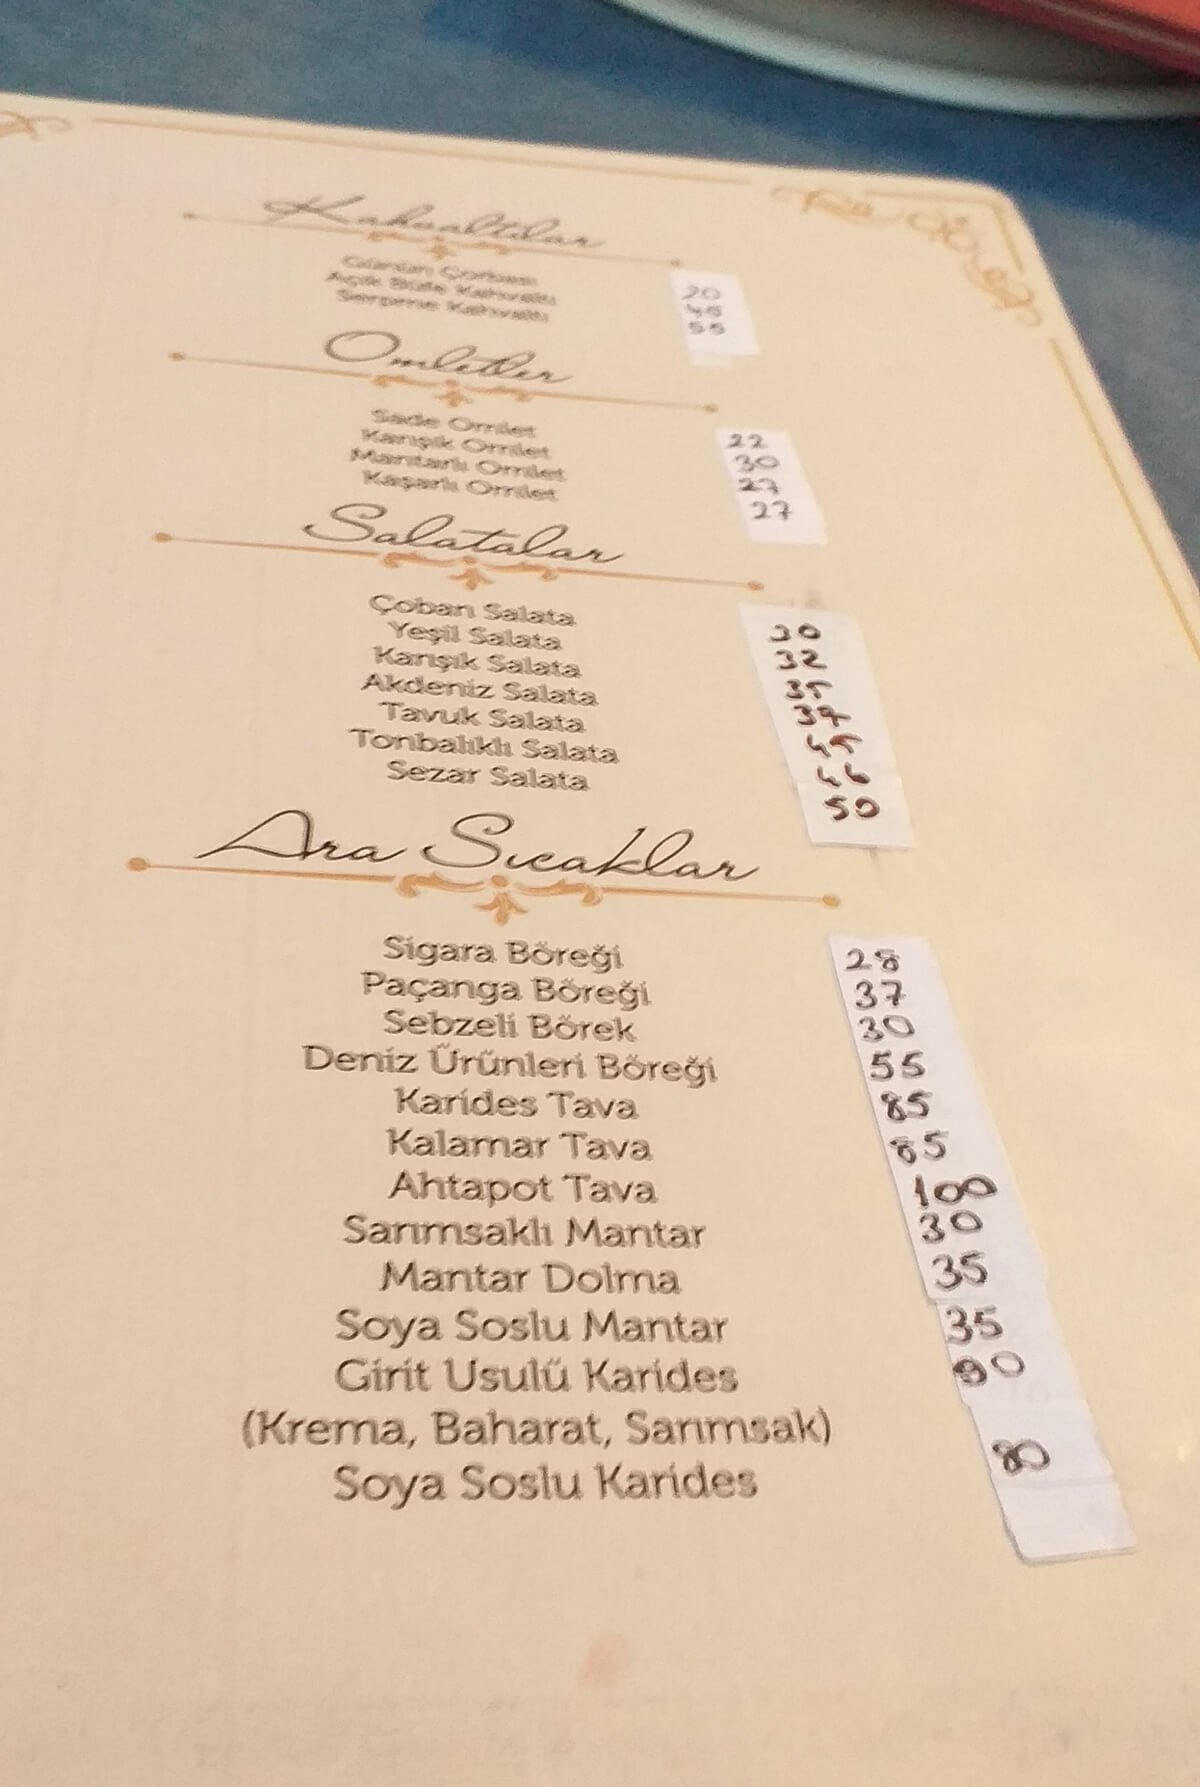 Kahvaltılar
Günün Çorbası 20
Açık Büfe Kahvaltı 45
Serpme Kahvaltı 55
Omletler
Sade Omlet 22
Karışık Omlet 30
Mantarlı Omlet 27
Kaşarlı Omlet 27
Salatalar
Çoban Salata 30
Yeşil Salata 32
Karışık Salata 35
Akdeniz Salata
Tavuk Salata 45
Tonbalıklı Salata 46
Sezar Salata 50
Ara Sıcaklar
Sigara Böreği 28
Paçanga Böreği 37
Sebzeli Börek 30
Deniz Ürünleri Böreği 55
Karides Tava 85
Kalamar Tava 85
Ahtapot Tava 100
Sarımsaklı Mantar 30
Mantar Dolma 35
Soya Soslu Mantar 35
Girit Usulü Karides 90
(Krema, Baharat, Sarımsak)
Soya Soslu Karides 80